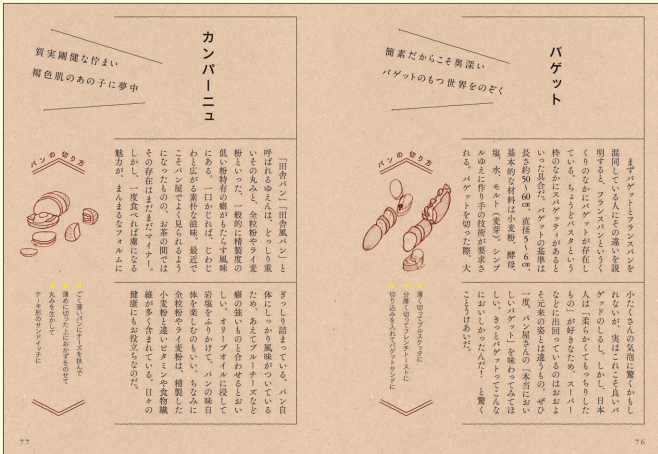 バゲット
簡素だからこそ奥深い
バゲットのもつ世界をのぞく
まずバゲットとフランスパンを
混同している人にその違いを説
明すると、フランスパンというく
くりのなかにバゲットが存在し
ている。ちょうどパスタという
枠のなかにスパゲティがあると
いった具合だ。バゲットの基準は
長さ約50〜60㎝、直径5〜6㎝、
基本的な材料は小麦粉、酵母、
塩、水、モルト(麦芽)。シンプ
ルゆえに作り手の技術が要求さ
れる。バゲットを切った際、大
小たくさんの気泡に驚くかもし
れないが、実はこれこそ良いバ
ゲットのしるし。しかし、日本
人は「柔らかくてもっちりした
もの」が好きなため、スーパー
などに出回っているのはおおよ
そ元来の姿とは違うもの。ぜひ
一度、パン屋さんの「本当におい
しいバゲット」を味わってみてほ
しい。きっとバゲットってこんな
においしかったんだ! と驚く
ことうけあいだ。
パンの切り方
薄く切ってブルスケッタに
分厚く切ってフレンチトーストに
切り込みを入れてバゲットサンドに
76
カンパーニュ
質実剛健な佇まい
褐色肌のあの子に夢中
「田舎パン」「田舎風パン」と
呼ばれるゆえんは、どっしり重
いその丸みと、全粒粉やライ麦
粉といった、一般的に精製度の
低い粉特有の癖がもたらす風味
にある。一口かじれば、じわじ
わと広がる素朴な滋味。最近で
こそパン屋でよく見られるよう
になったものの、お茶の間では
その存在はまだまだマイナー。
しかし、一度食べれば虜になる
魅力が、まんまるなフォルムに
ぎっしり詰まっている。パン自
体にしっかり風味がついている
ため、あえてブルーチーズなど
癖の強いものと合わせるとおい
しい。オリーブオイルに浸して
岩塩をふりかけて、パンの味自
体を楽しむのもいい。ちなみに
全粒粉やライ麦粉は、精製した
小麦粉と違いビタミンや食物繊
維が多く含まれている。日々の
健康にもお役立ちなのだ。
パンの切り方
ごく薄いパンにチーズを挟んで
薄めに切った上におかずをのせて
丸みを生かして
ケーキ形のサンドイッチに
77